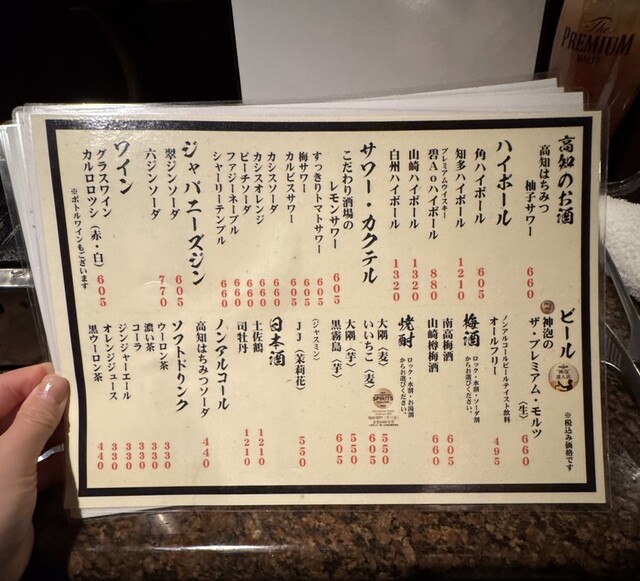 The
PREMIUM
MALT'S
高知のお酒
高知はちみつ
柚子サワー 660
ハイボール
角ハイボール 605
知多ハイボール 1210
プレミアムウイスキー
碧Aoハイボール 880
山崎ハイボール 1320
白州ハイボール 1320
サワー・カクテル
こだわり酒場の
レモンサワー 605
すっきりトマトサワー 605
梅サワー 605
カルピスサワー 605
カシスソーダ 660
カシスオレンジ 660
ピーチソーダ 660
ファジーネーブル 660
シャーリーテンプル 660
ジャパニーズジン
翠ジンソーダ 605
六ジンソーダ 770
ワイン
グラスワイン
カルロロッシ(赤・白) 605
※ボトルワインもございます
ビール
※税込み価格です
神泡の
ザ・プレミアム・モルツ(生) 660
ノンアルコールビールテイスト飲料
オールフリー 495
梅酒
ロック・水割・ソーダ割
からお選びください。
南高梅酒 605
山崎樽梅酒 660
焼酎
ロック・水割・お湯割
からお選びください。
SPIRITS
大隅(麦) 550
いいちこ(麦) 605
大隅(芋) 550
黒霧島(芋) 605
(ジャスミン)
JJ(茉莉花) 550
日本酒
土佐鶴 1210
司牡丹 1210
ノンアルコール
高知はちみつソーダ 440
ソフトドリンク
ウーロン茶 330
濃い茶 330
コーラ 330
ジンジャーエール 330
オレンジジュース 330
黒ウーロン茶 440